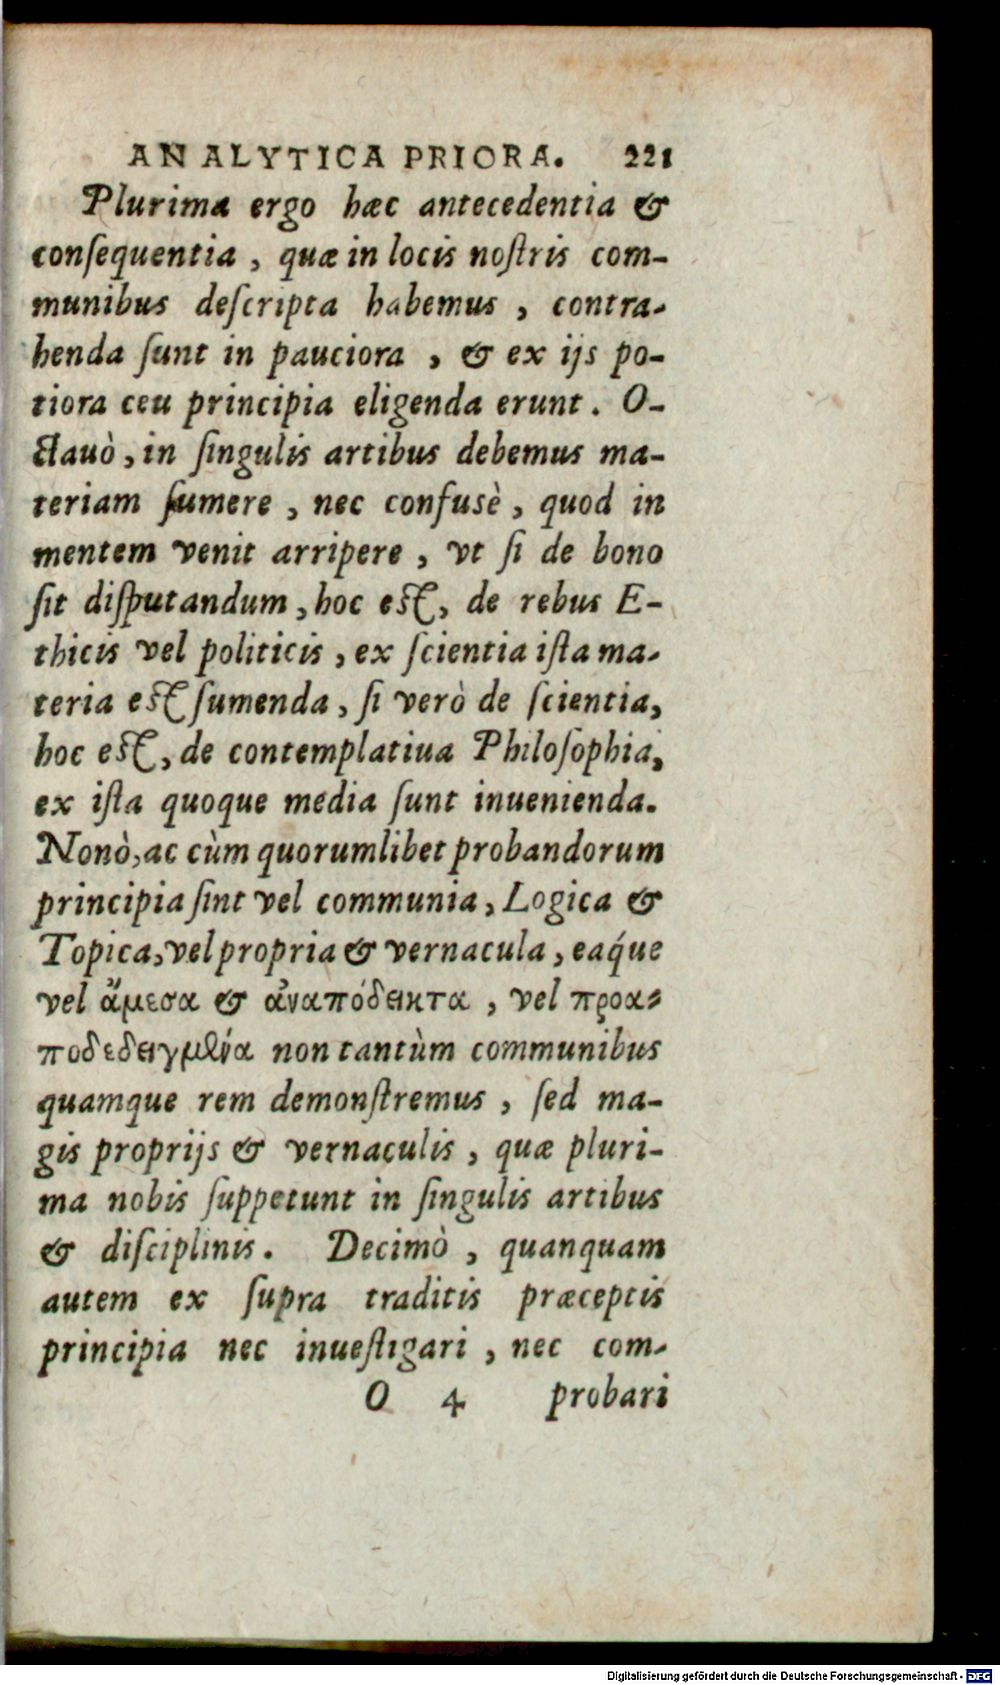 ANALYTICA PRIORA. 221
Plurima ergo hæc antecedentia &
conſequentia, quæ in locis noſtris com-
munibus deſcripta habemus, contra-
henda ſunt in pauciora, & ex ijs po-
tiora ceu principia eligenda erunt. O-
ctauò, in ſingulis artibus debemus ma-
teriam ſumere, nec confusè, quod in
mentem venit arripere, vt ſi de bono
ſit diſputandum, hoc eſt, de rebus E-
thicis vel politicis, ex ſcientia iſta ma-
teria eſt ſumenda, ſi verò de ſcientia,
hoc eſt, de contemplatiua Philoſophia,
ex iſta quoque media ſunt inuenienda.
Nonò, ac cùm quorumlibet probandorum
principia ſint vel communia, Logica &
Topica, vel propria & vernacula, eaq́ue
vel ἄμεσα & ἀναπόδεικτα, vel προα-
ποδεδειγμένα non tantùm communibus
quamque rem demonſtremus, ſed ma-
gis proprijs & vernaculis, quæ pluri-
ma nobis ſuppetunt in ſingulis artibus
& diſciplinis. Decimò, quanquam
autem ex ſupra traditis præceptis
principia nec inueſtigari, nec com-
O 4 probari
Digitalisierung gefördert durch die Deutsche Forschungsgemeinschaft - DFG